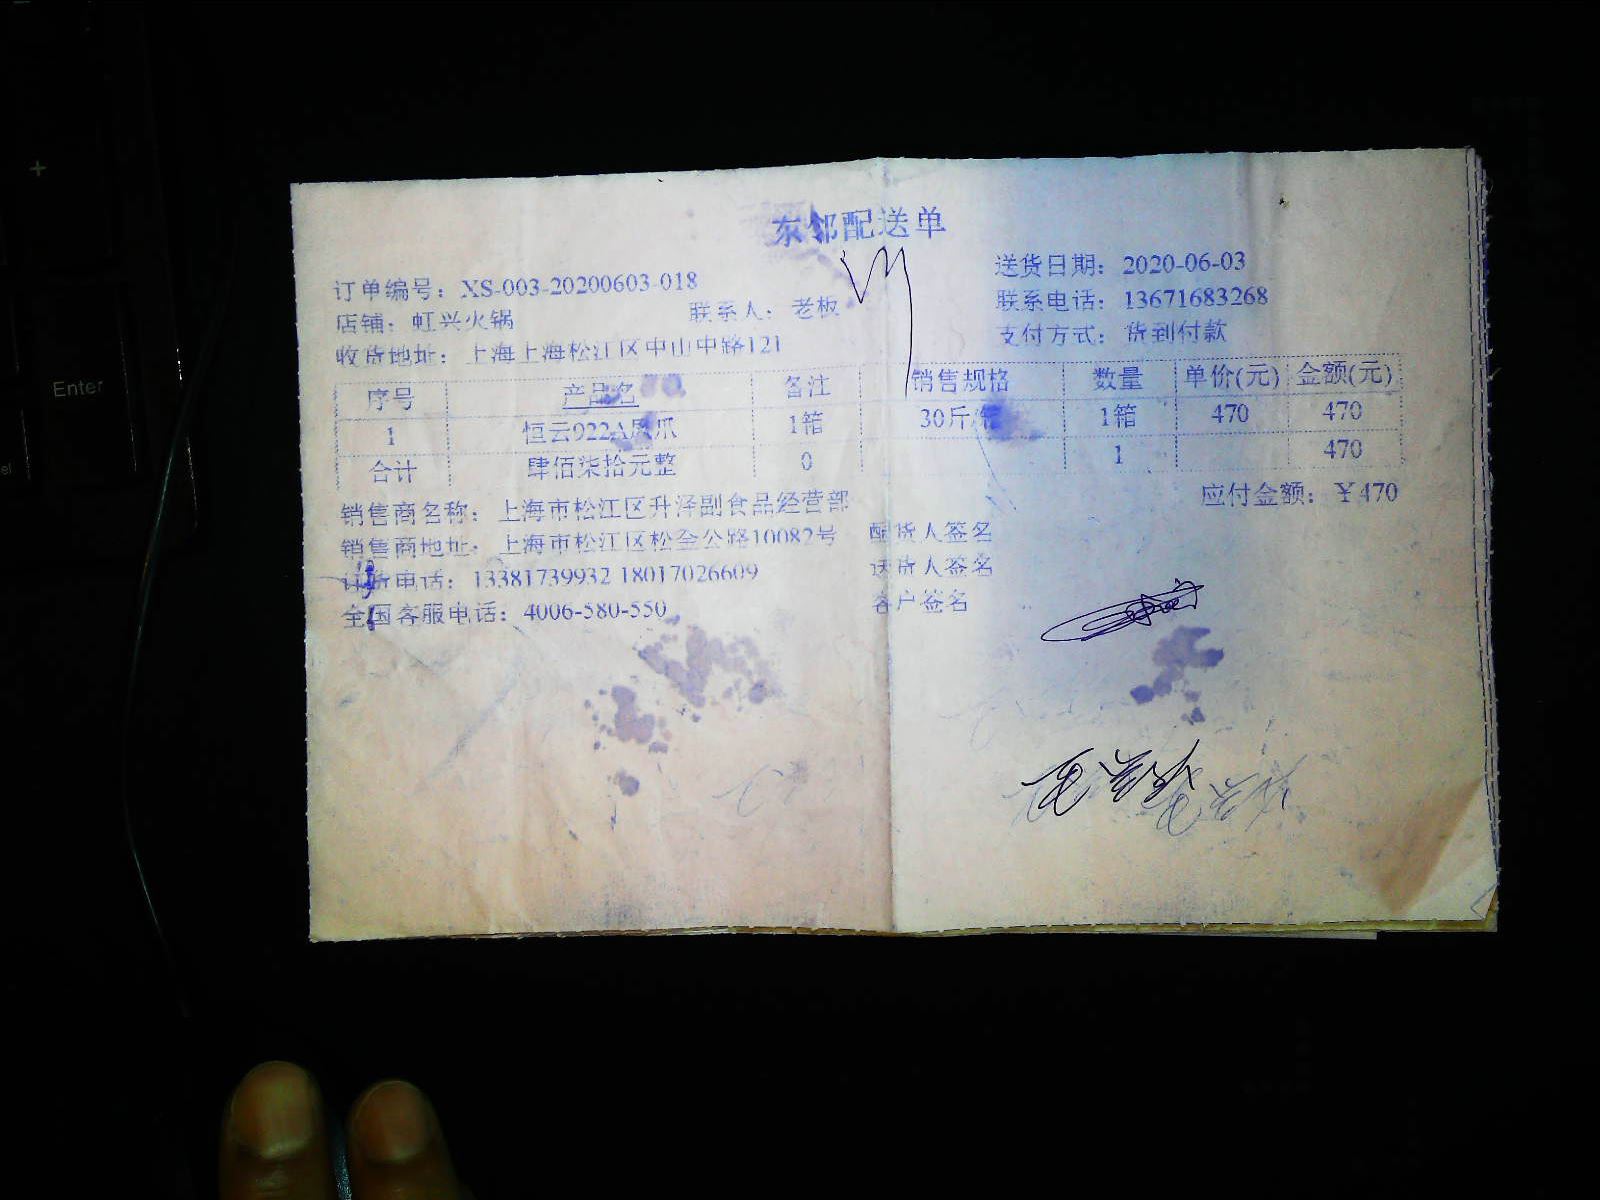 东邻配送单
订单编号：XS-003-20200603-018 送货日期：2020-06-03
店铺：虹兴火锅 联系人：老板 联系电话：13671683268
收货地址：上海上海松江区中山中路121 支付方式：货到付款
序号 产品名 备注 销售规格 数量 单价(元) 金额(元)
1 恒云922A凤爪 1箱 30斤/箱 1箱 470 470
合计 肆佰柒拾元整 0 1 470
销售商名称：上海市松江区升泽副食品经营部 应付金额：￥470
销售商地址：上海市松江区松金公路10082号 配货人签名
订货电话：13381739932 18017026609 送货人签名
全国客服电话：4006-580-550 客户签名
Enter
+